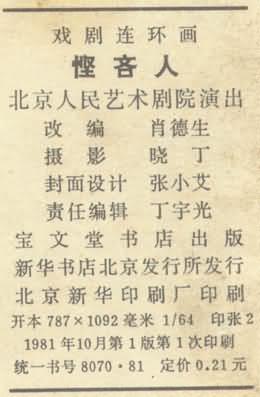 戏剧连环画
悭吝人
北京人民艺术剧院演出
改编 肖德生
摄影 晓丁
封面设计 张小艾
责任编辑 丁宇光
宝文堂书店出版
新华书店北京发行所发行
北京新华印刷厂印刷
开本 787×1092 毫米 1/64 印张 2
1981年10月第1版第1次印刷
统一书号 8070·81 定价 0.21 元